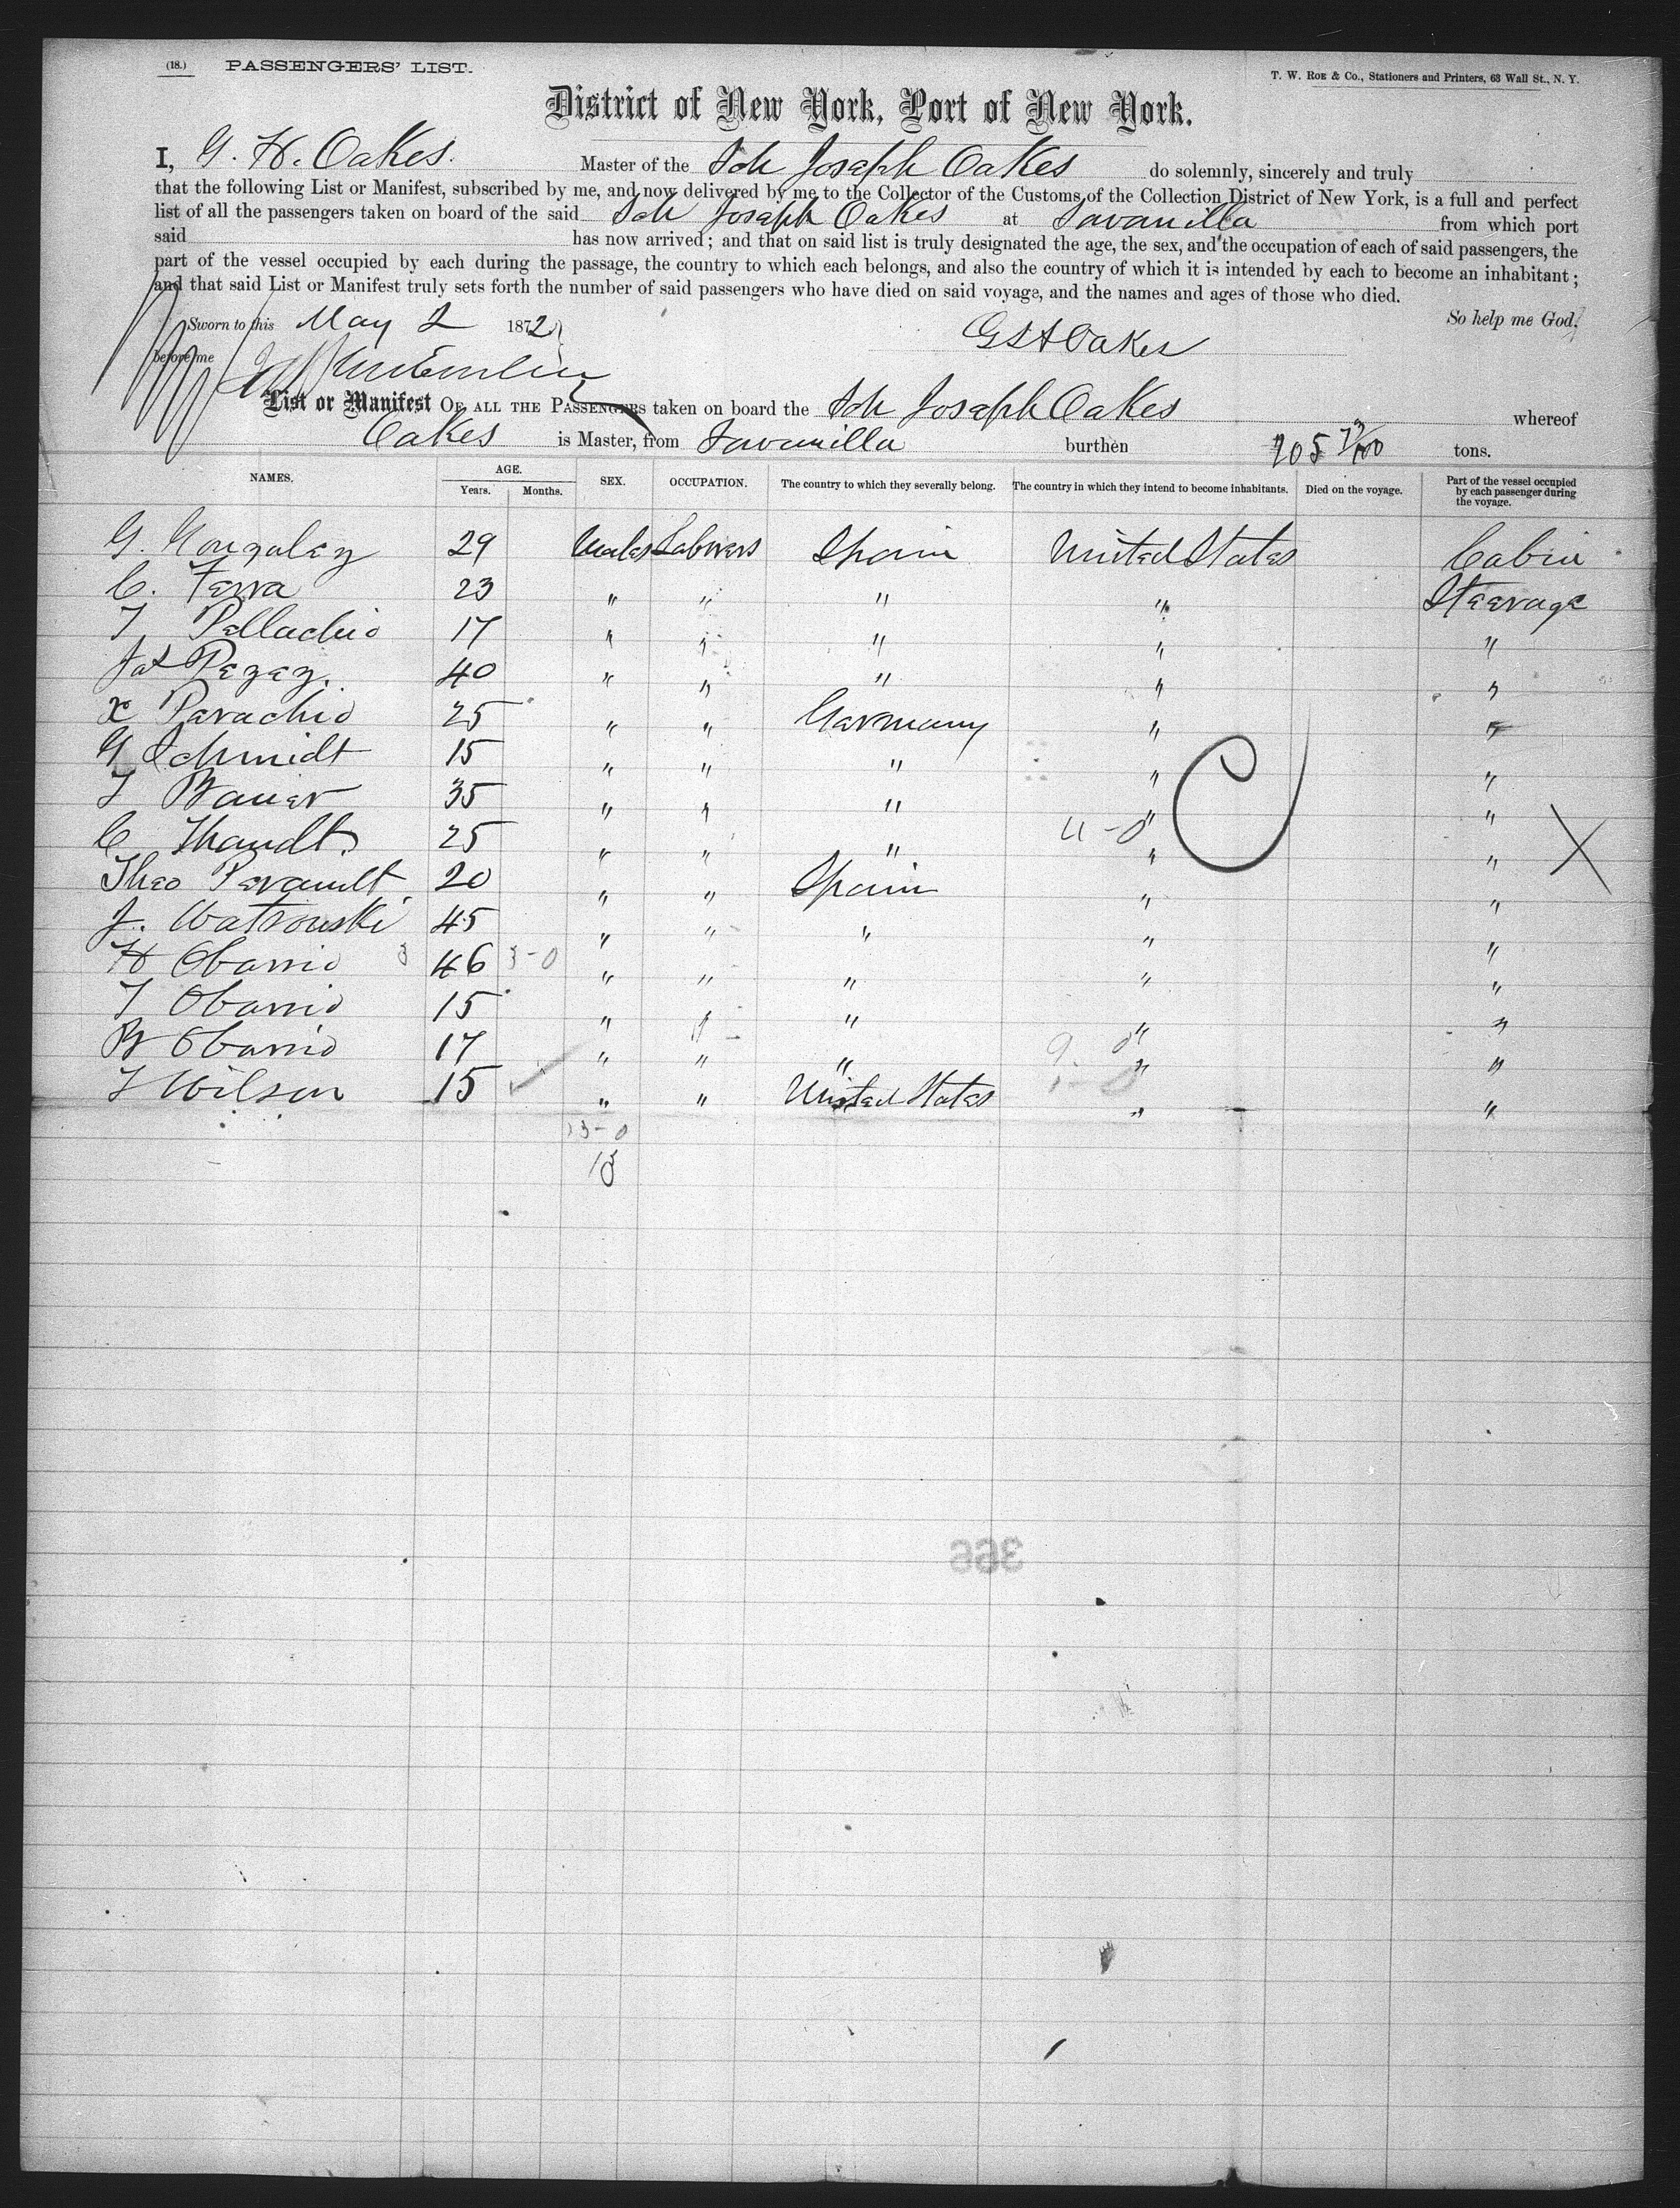 (18.) PASSENGERS' LIST.
T. W. ROE & Co., Stationers and Printers, 63 Wall St., N. Y.
District of New York, Port of New York.
I, G. H. Oakes. Master of the Sch Joseph Oakes do solemnly, sincerely and truly
that the following List or Manifest, subscribed by me, and now delivered by me to the Collector of the Customs of the Collection District of New York, is a full and perfect
list of all the passengers taken on board of the said Sch Joseph Oakes at Savanilla from which port
said has now arrived; and that on said list is truly designated the age, the sex, and the occupation of each of said passengers, the
part of the vessel occupied by each during the passage, the country to which each belongs, and also the country of which it is intended by each to become an inhabitant;
and that said List or Manifest truly sets forth the number of said passengers who have died on said voyage, and the names and ages of those who died.
So help me God.
Sworn to this May 2 1872
G H Oakes
before me
List or Manifest OF ALL THE PASSENGERS taken on board the Sch Joseph Oakes whereof
Oakes is Master, from Savanilla burthen 205 tons.
NAMES. AGE. Years. Months. SEX. OCCUPATION. The country to which they severally belong. The country in which they intend to become inhabitants. Died on the voyage. Part of the vessel occupied by each passenger during the voyage.
G. Gonzalez 29 Males Laborers Spain United States Cabin
C. Ferra 23 " " " " Steerage
T Pellachio 17 " " " " "
Pezez. 40 " " " " "
x Parachio 25 " " Germany " "
G Schmidt 15 " " " " "
T Bauer 35 " " " " "
C Thaudt. 25 " " " 4-0 " "
Theo Perault 20 " " Spain " "
J. Watrouski 45 " " " " "
H Obarrio 3 46 3-0 " " " " "
T Obarrio 15 " " " "
B Obarrio 17 " " " 9-0 " "
T Wilson 15 " " United States 1-0 " "
13-0
366